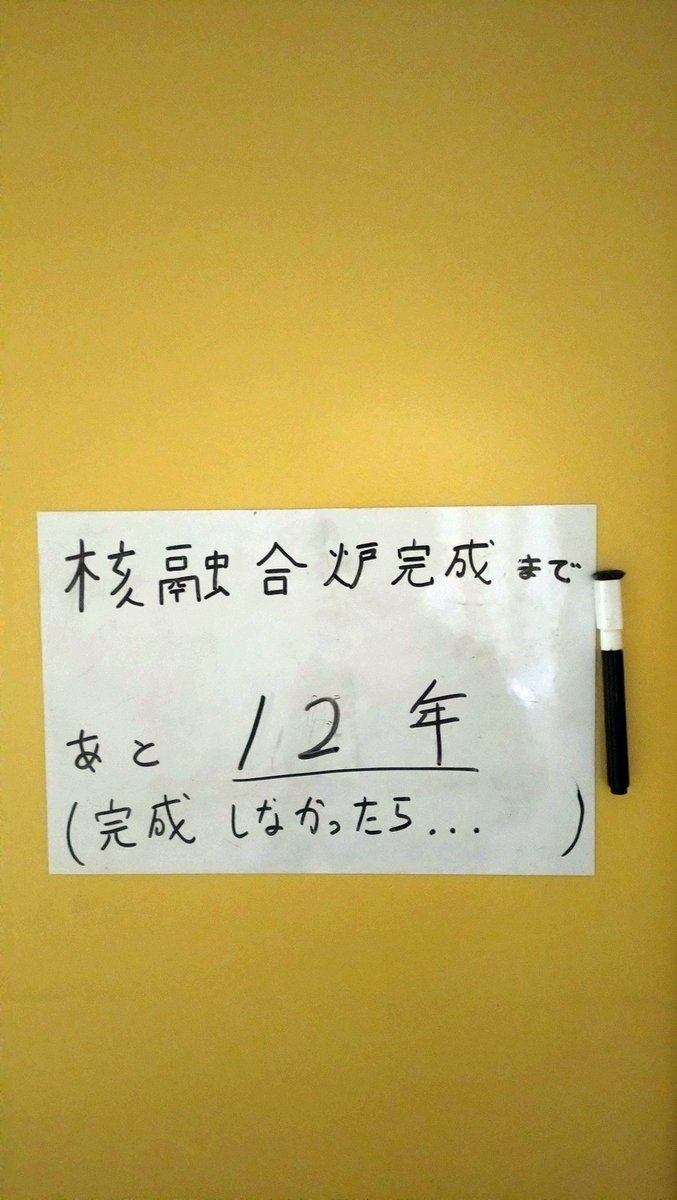 核融合炉完成まで
あと 12年
(完成しなかったら...　　)